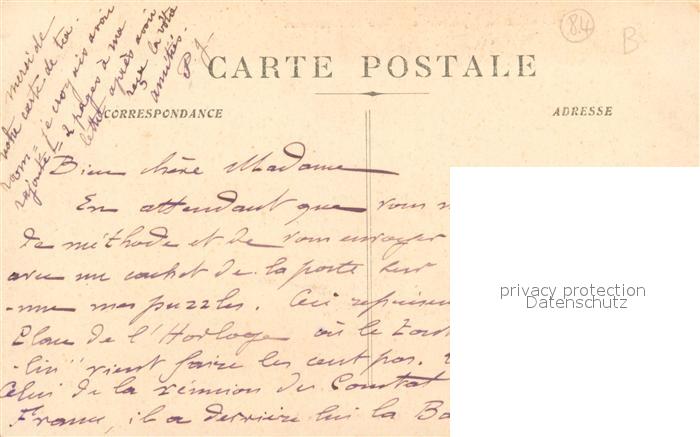 merci de
votre carte de tea
room = je croyais avoir
rajouté 2 pages à ma
lettre après avoir
reçu la vôtre
amitiés.
P J
84
B
CARTE POSTALE
CORRESPONDANCE
ADRESSE
Bien chère Madame
En attendant que vous
de méthode et de vous envoyer
avec un cachet de la poste sur
mes puzzles. Ceci
Place de l'Horloge où le
lin" vient faire les cent pas.
Celui de la réunion du Comtat
France, il a derrière lui la Ba
privacy protection
Datenschutz